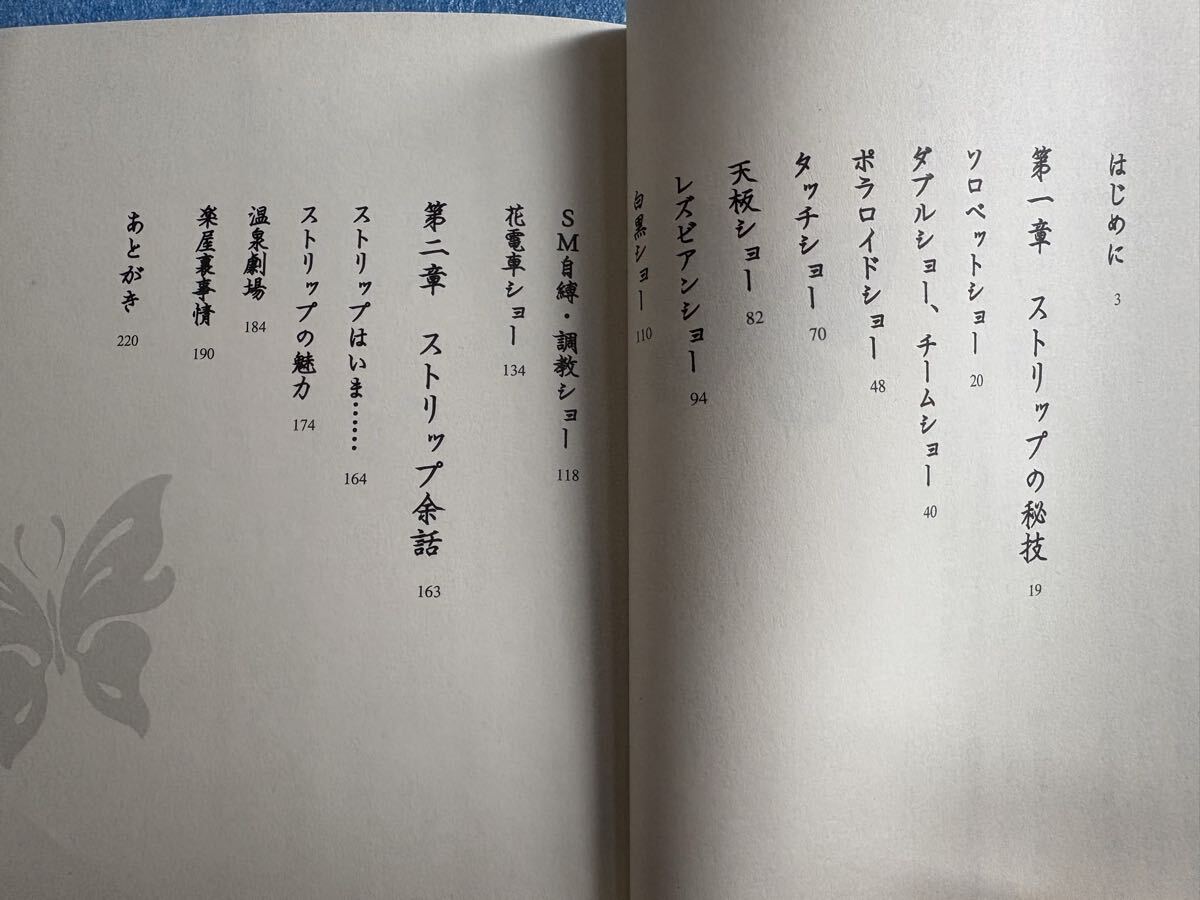 はじめに 3
第一章 ストリップの秘技 19
ソロベットショー 20
ダブルショー、チームショー 40
ポラロイドショー 48
タッチショー 70
天板ショー 82
レズビアンショー 94
白黒ショー 110
SM自縛・調教ショー 118
花電車ショー 134
第二章 ストリップ余話 163
ストリップはいま…… 164
ストリップの魅力 174
温泉劇場 184
楽屋裏事情 190
あとがき 220